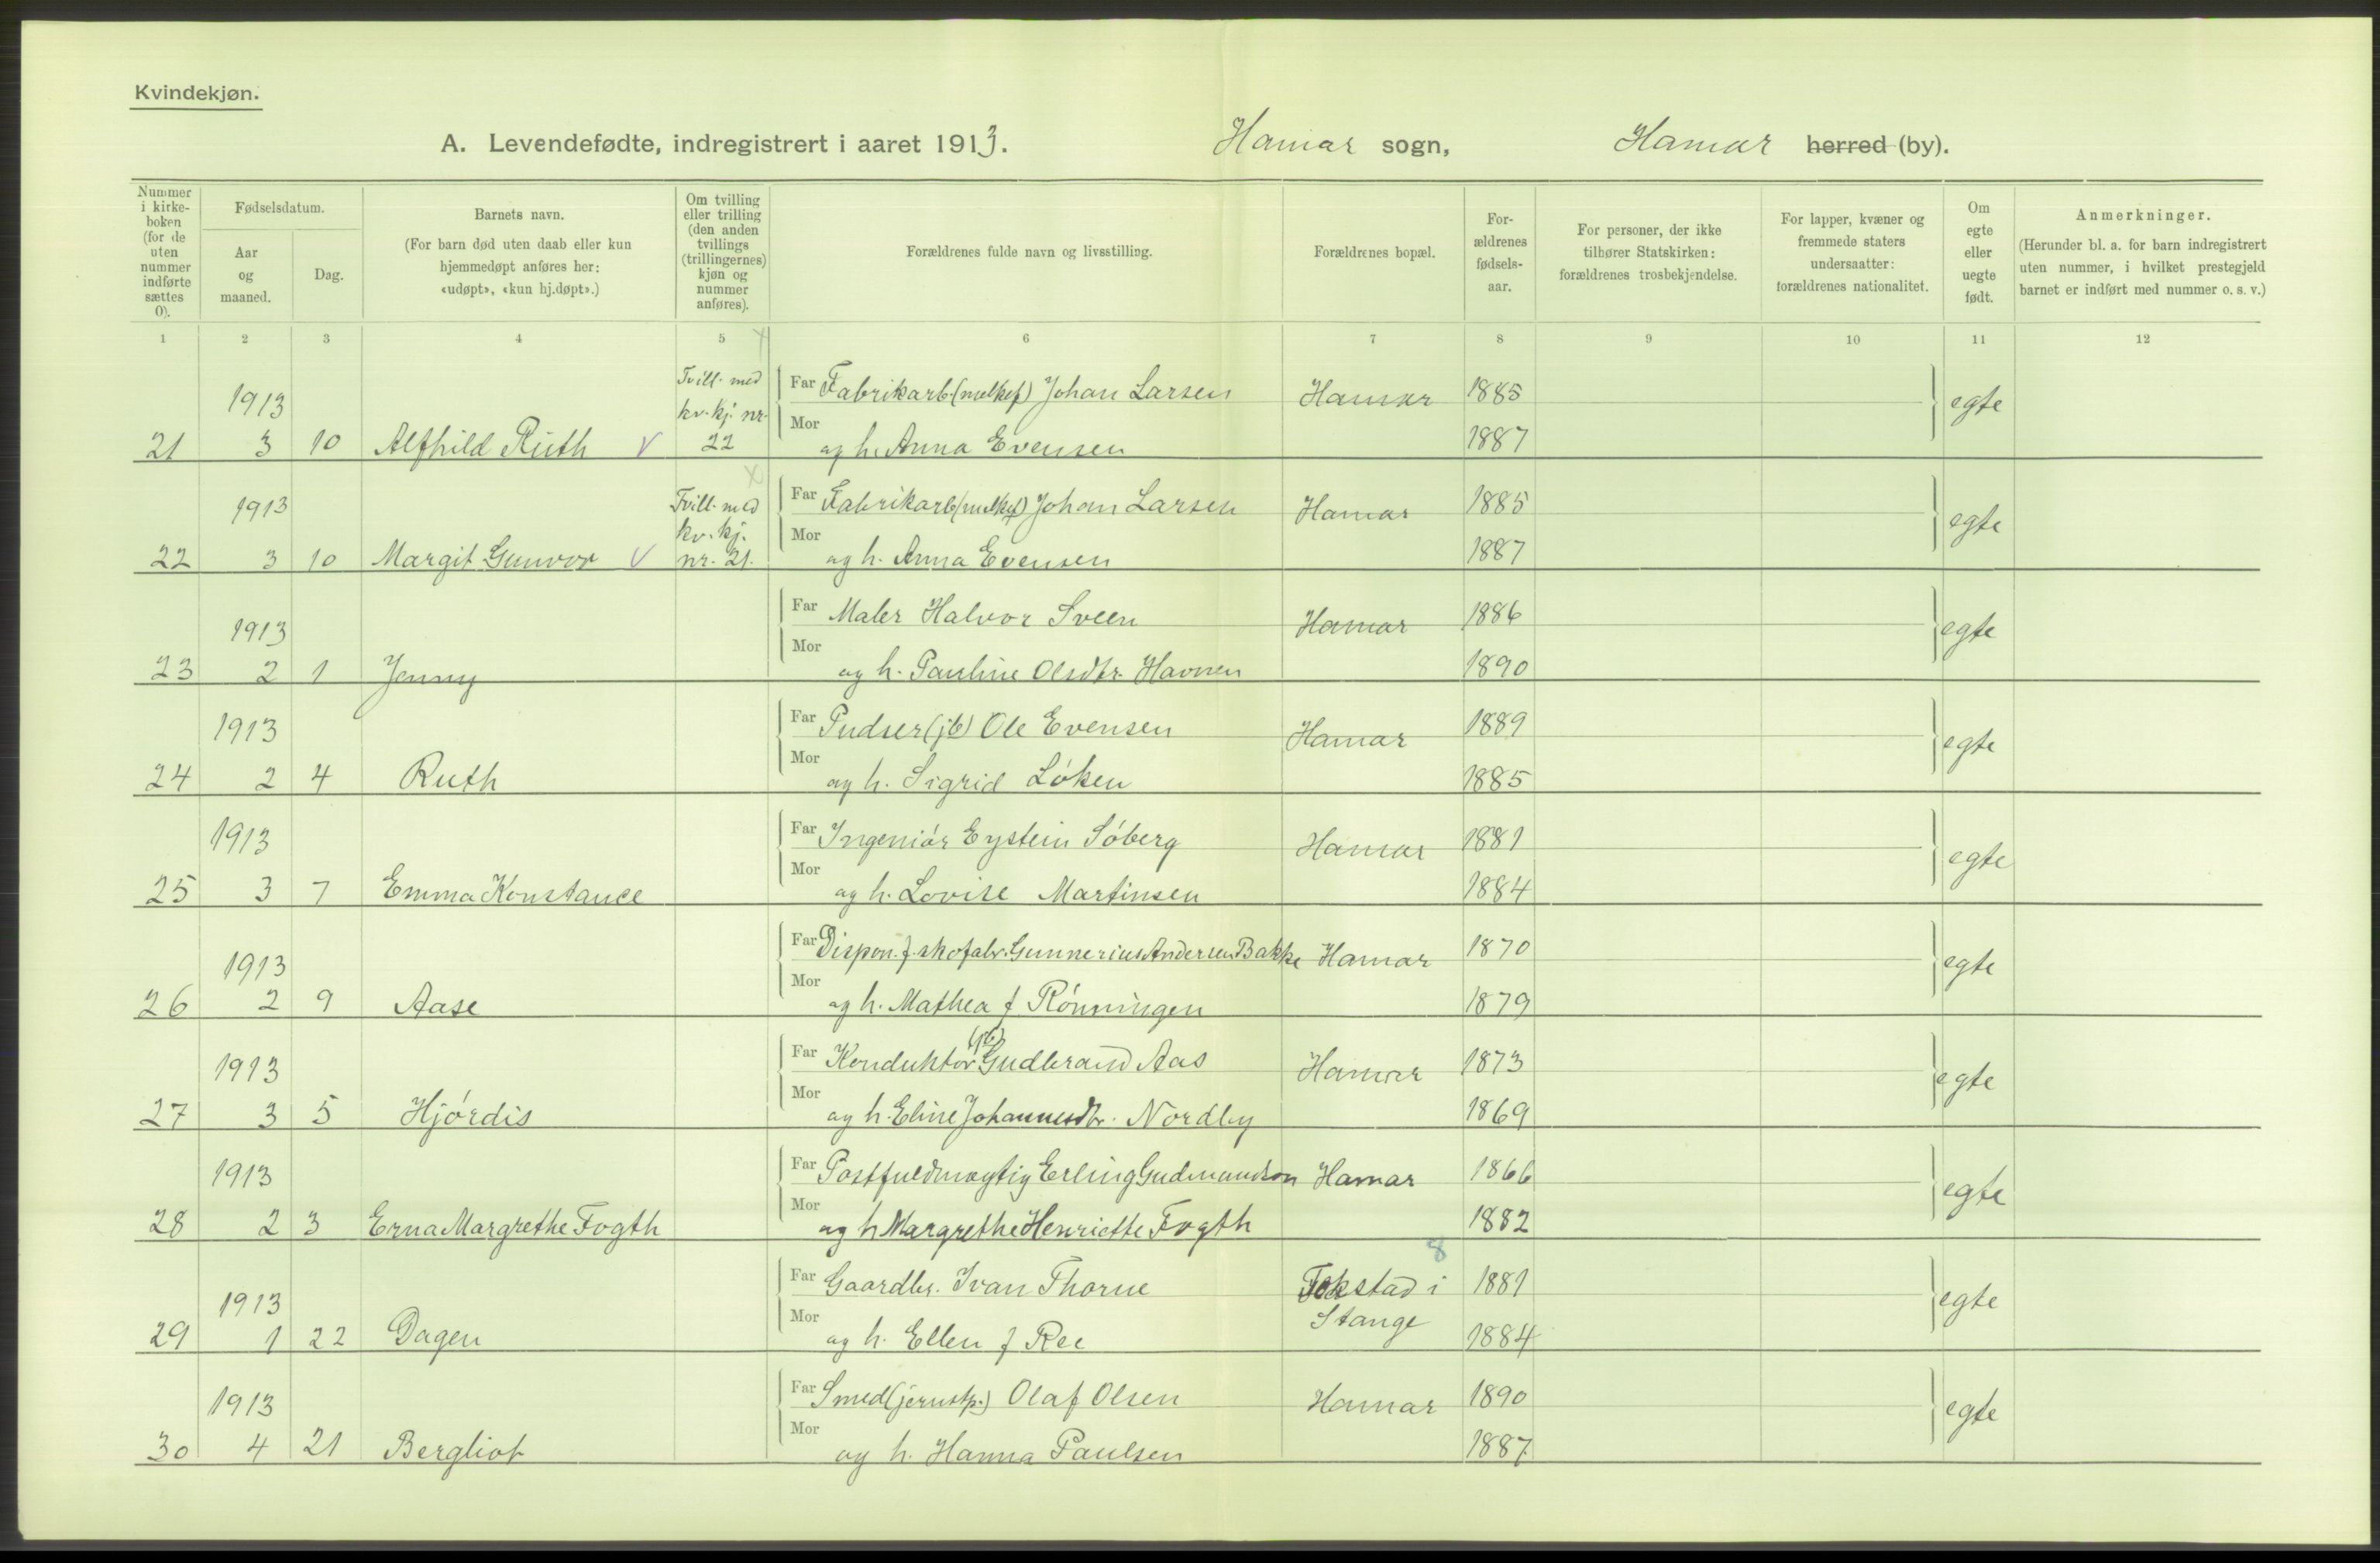 Kvindekjøn.
A. Levendefødte, indregistrert i aaret 1913. Hamar sogn, Hamar herred (by).
Nummer i kirke-boken (for de uten nummer indførte sættes 0).
Fødselsdatum.
Aar og maaned.
Dag.
Barnets navn.
(For barn død uten daab eller kun hjemmedøpt anføres her: «udøpt», «kun hj.døpt».)
Om tvilling eller trilling (den anden tvillings (trillingernes) kjøn og nummer anføres).
Forældrenes fulde navn og livsstilling.
Forældrenes bopæl.
For-ældrenes fødsels-aar.
For personer, der ikke tilhører Statskirken: forældrenes trosbekjendelse.
For lapper, kvæner og fremmede staters undersaatter: forældrenes nationalitet.
Om egte eller uegte født.
Anmerkninger.
(Herunder bl. a. for barn indregistrert uten nummer, i hvilket prestegjeld barnet er indført med nummer o. s. v.)
1 2 3 4 5 6 7 8 9 10 11 12
1913 Tvill. med kv. kj. nr. Far Fabrikarb (melkef) Johan Larsen Hamar 1885 egte
21 3 10 Alfhild Ruth v 22 Mor og h. Anna Evensen 1887
1913 Tvill. med kv. kj. Far Fabrikarb (melkef) Johan Larsen Hamar 1885 egte
22 3 10 Margit Gunvor v nr. 21. Mor og h. Anna Evensen 1887
1913 Far Maler Halvor Sveen Hamar 1886 egte
23 2 1 Jenny Mor og h. Pauline Olsdtr. Havnen 1890
1913 Far Pudser (jb) Ole Evensen Hamar 1889 egte
24 2 4 Ruth Mor og h. Sigrid Løken 1885
1913 Far Ingeniór Eystein Sóberg Hamar 1881 egte
25 3 7 Emma Konstance Mor og h. Lovise Martinsen 1884
1913 Far Dispon. f. skofabr. Gunnerius Andersen Bakke Hamar 1870 egte
26 2 9 Aase Mor og h. Mathea f Rónningen 1879
1913 Far Konduktør (jb) Gudbrand Aas Hamar 1873 egte
27 3 5 Hjórdis Mor og h. Eline Johannesdtr. Nordby 1869
1913 Far Postfuldmægtig Erling Gudmundson Hamar 1866 egte
28 2 3 Erna Margrethe Fogth Mor og h Margrethe Henriette Fogth 1882
8
1913 Far Gaardbr. Ivan Thorne Tokstad i Stange 1881 egte
29 1 22 Dagen Mor og h. Ellen f Ree 1884
1913 Far Smed (jernstp.) Olaf Olsen Hamar 1890 egte
30 4 21 Bergliot Mor og h. Hanna Paulsen 1887